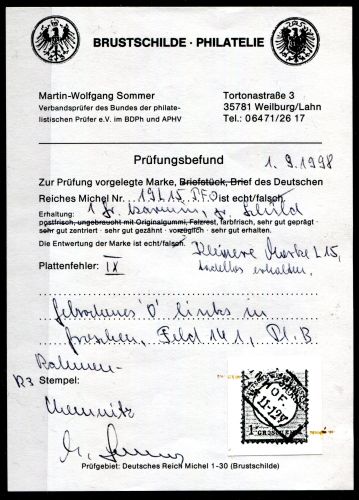 BRUSTSCHILDE · PHILATELIE
Martin-Wolfgang Sommer
Verbandsprüfer des Bundes der philate-
listischen Prüfer e.V. im BDPh und APHV
Tortonastraße 3
35781 Weilburg/Lahn
Tel.: 06471/26 17
Prüfungsbefund
1. 9. 1998
Zur Prüfung vorgelegte Marke, Briefstück, Brief des Deutschen
Reiches Michel Nr. 19L15 PFO ist echt/falsch.
Erhaltung:
postfrisch, ungebraucht mit Originalgummi, Falzrest, farbfrisch, sehr gut geprägt
sehr gut zentriert · sehr gut gezähnt · vorzüglich · sehr gut erhalten.
Die Entwertung der Marke ist echt/falsch.
Kleinere Marke L15,
tadellos erhalten.
Plattenfehler: IX
gebrochenes "O" links in
groschen, Feld 141, Pl. B
Rahmen-
R3 Stempel:
Chemnitz
HOF.
11-12V
1 GROSCHEN 1
Prüfgebiet: Deutsches Reich Michel 1-30 (Brustschilde)